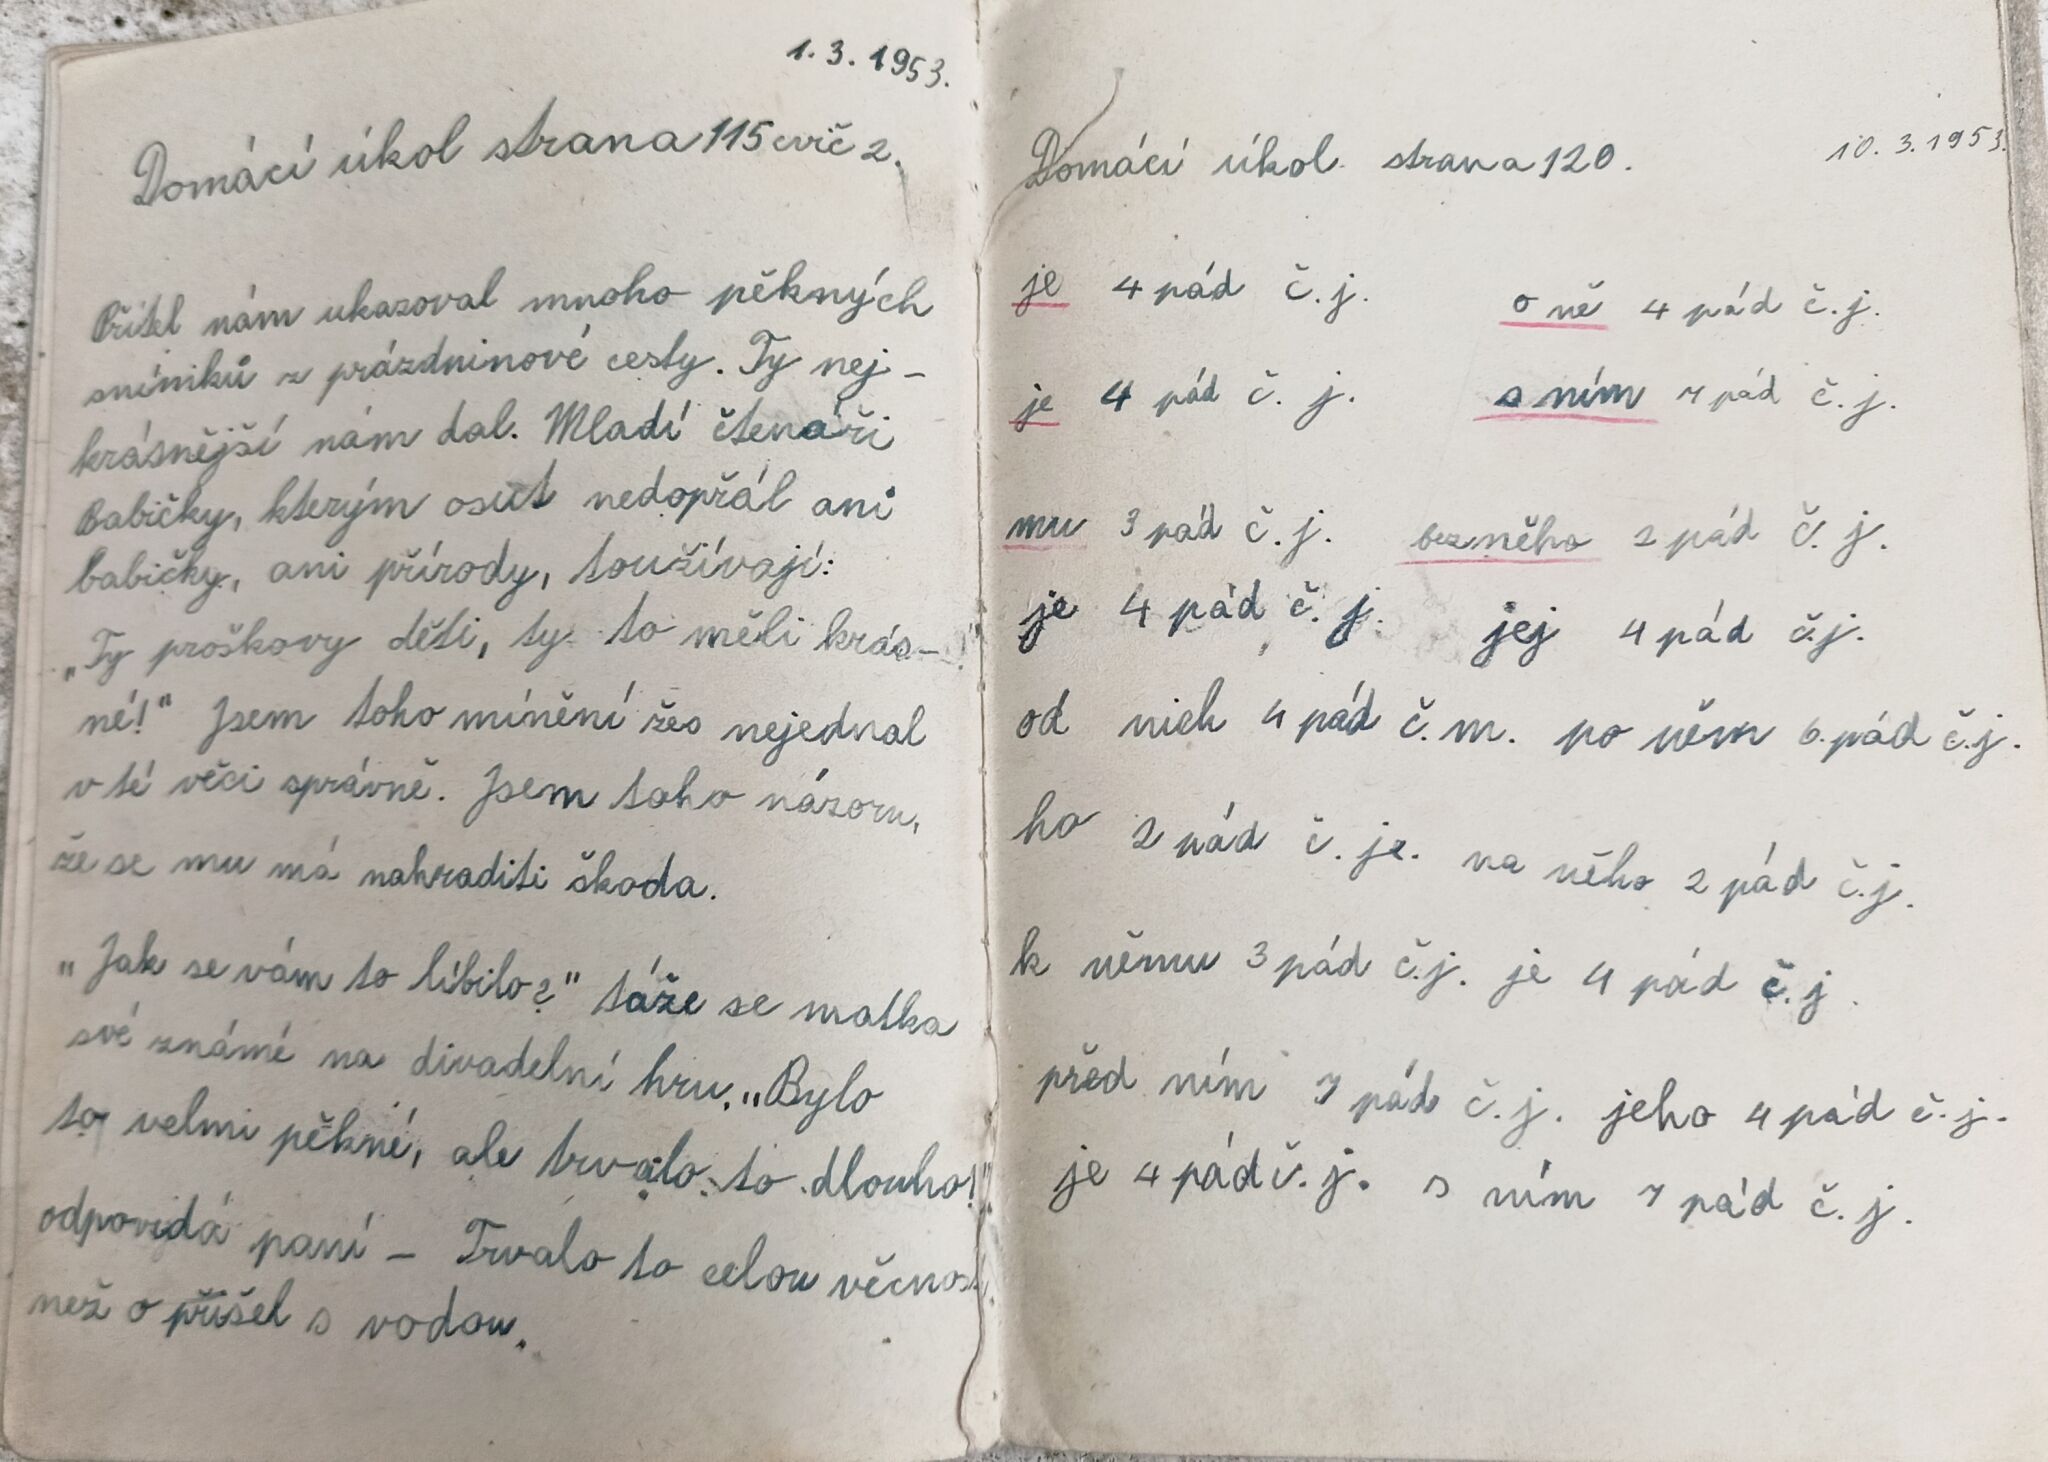 1. 3. 1953.
Domácí úkol strana 115 cvič 2.
Přítel nám ukazoval mnoho pěkných
snímků z prázdninové cesty. Ty nej-
krásnější nám dal. Mladí čtenáři
Babičky, kterým osut nedopřál ani
babičky, ani přírody, toužívají:
„Ty proškovy děti, ty to měli krás-
né!" Jsem toho mínění žes nejednal
v té věci správně. Jsem toho názoru,
že se mu má nahraditi škoda.
„Jak se vám to líbilo?" táže se matka
své známé na divadelní hru. „Bylo
to velmi pěkné, ale trvalo to dlouho!"
odpovidá paní – Trvalo to celou věcnost
než o přišel s vodou.
Domácí úkol strana 120. 10. 3. 1953.
je 4 pád č. j. o ně 4 pád č. j.
je 4 pád č. j. s ním 7 pád č. j.
mu 3 pád č. j. bez něho 2 pád č. j.
je 4 pád č. j. jej 4 pád č. j.
od nich 4 pád č. m. po něm 6. pád č. j.
ho 2 pád č. je. na něho 2 pád č. j.
k němu 3 pád č. j. je 4 pád č. j.
před ním 7 pád č. j. jeho 4 pád č. j.
je 4 pád č. j. s ním 7 pád č. j.